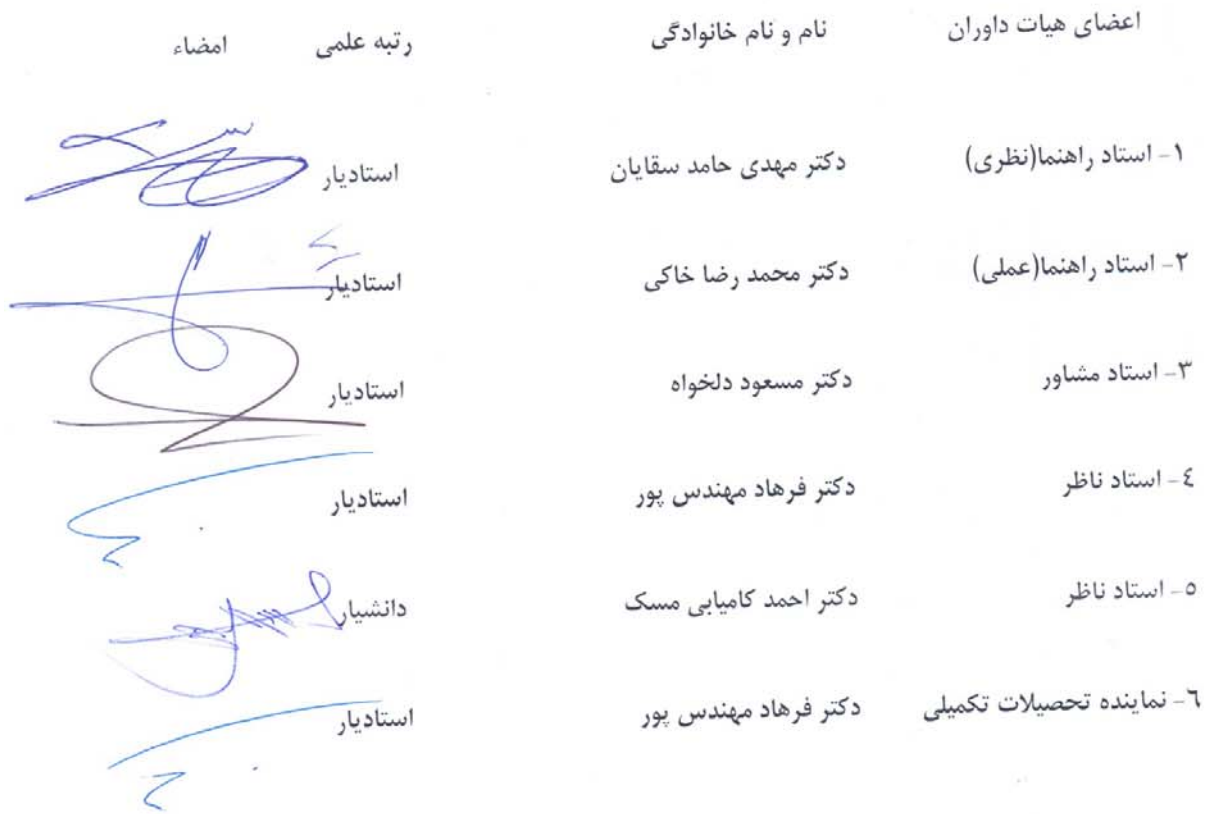 اعضای هیات داوران نام و نام خانوادگی رتبه علمی امضاء
۱- استاد راهنما(نظری) دکتر مهدی حامد سقایان استادیار
۲- استاد راهنما(عملی) دکتر محمد رضا خاکی استادیار
۳- استاد مشاور دکتر مسعود دلخواه استادیار
٤- استاد ناظر دکتر فرهاد مهندس پور استادیار
٥- استاد ناظر دکتر احمد کامیابی مسک دانشیار
٦- نماینده تحصیلات تکمیلی دکتر فرهاد مهندس پور استادیار